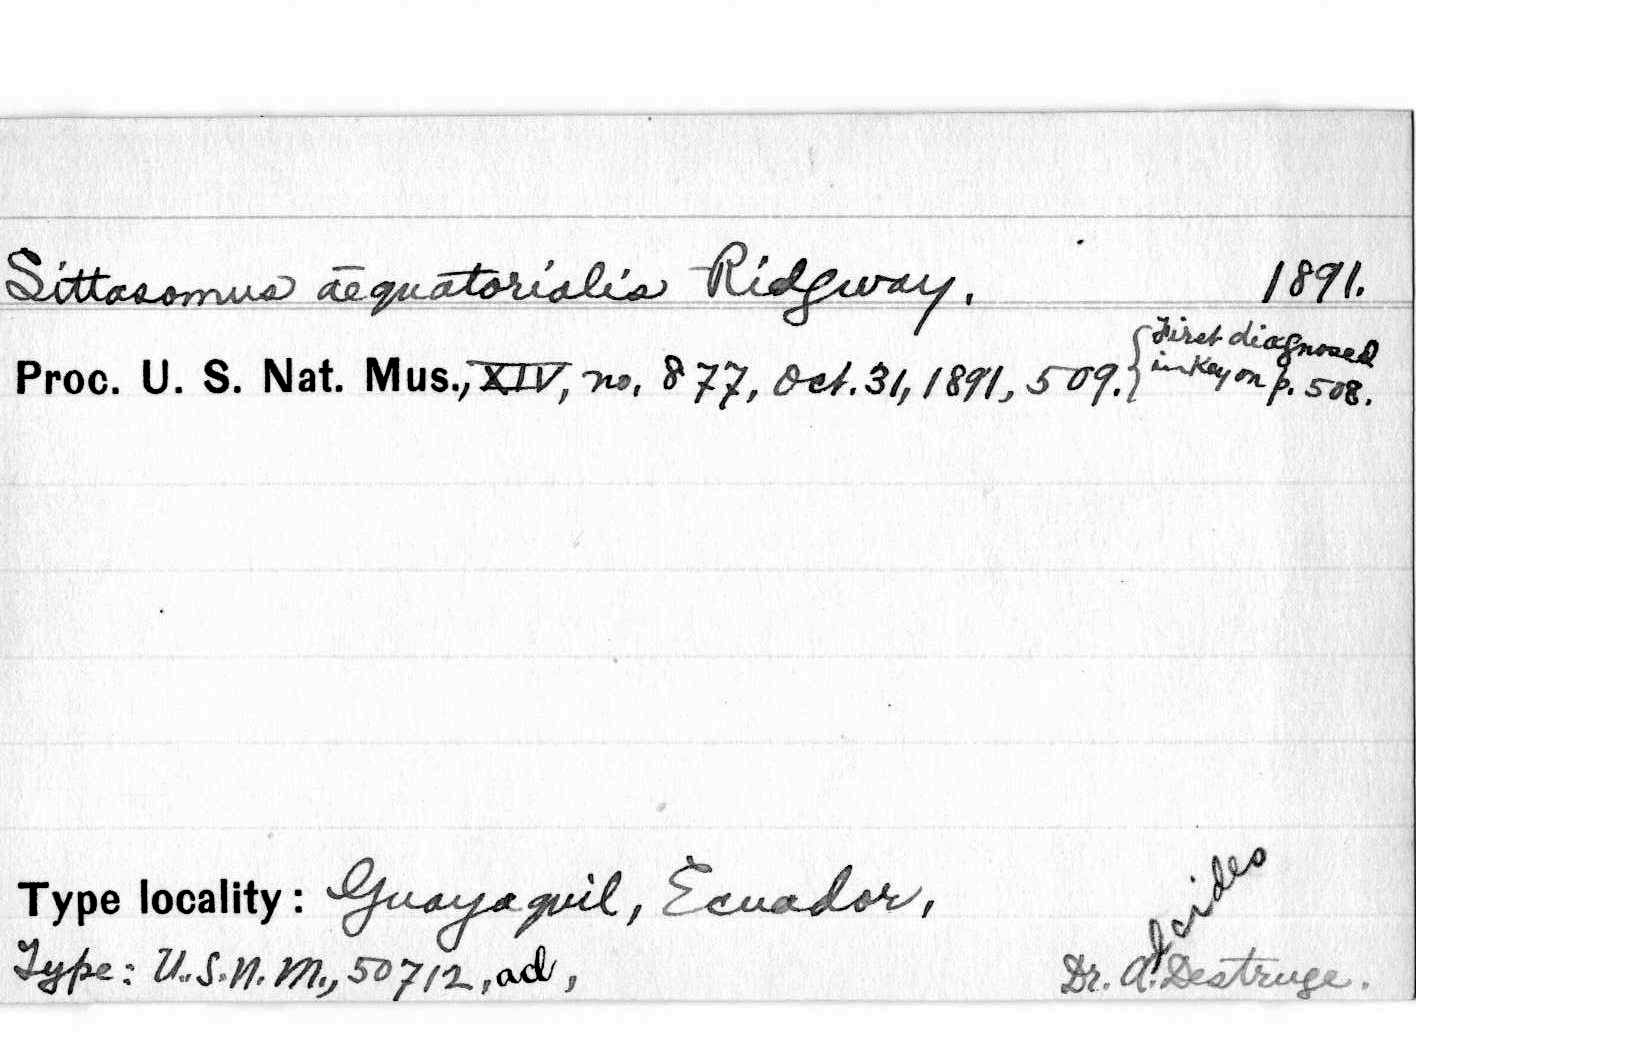 Sittasomus æquatorialis Ridgway. 1891.
Proc. U. S. Nat. Mus., XIV, no. 877, Oct. 31, 1891, 509. { First diagnosed
in Key on p. 508.
Type locality: Guayaquil, Ecuador,
Type: U.S.N.M., 50712, ad, Dr. A. Destruge.